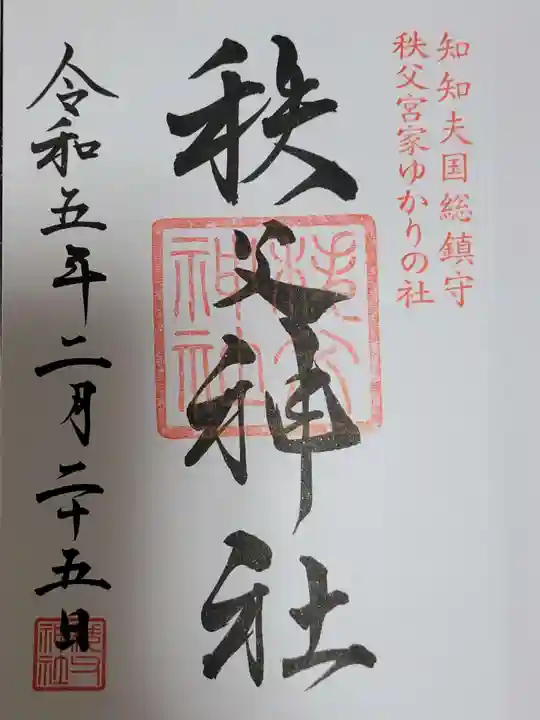 知知夫国総鎮守
秩父宮家ゆかりの社
秩父神社
令和五年二月二十五日
秩父神社
秩父神社